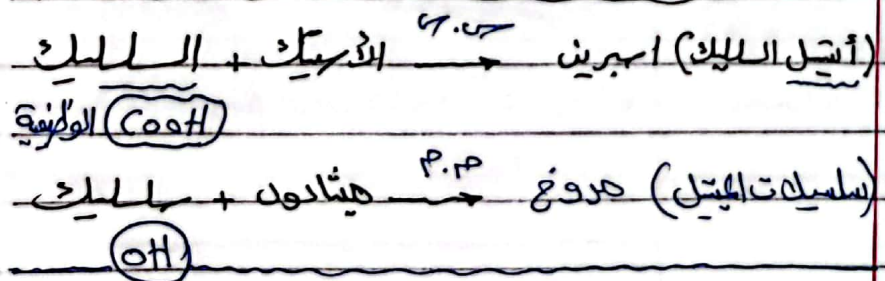 السلليك + الأسيتيك ⟶ اسبرين (أستيل السلليك)
الوظيفية COOH
سلليك + ميثانول ⟶ مروخ (سلسيلات الميثيل)
OH